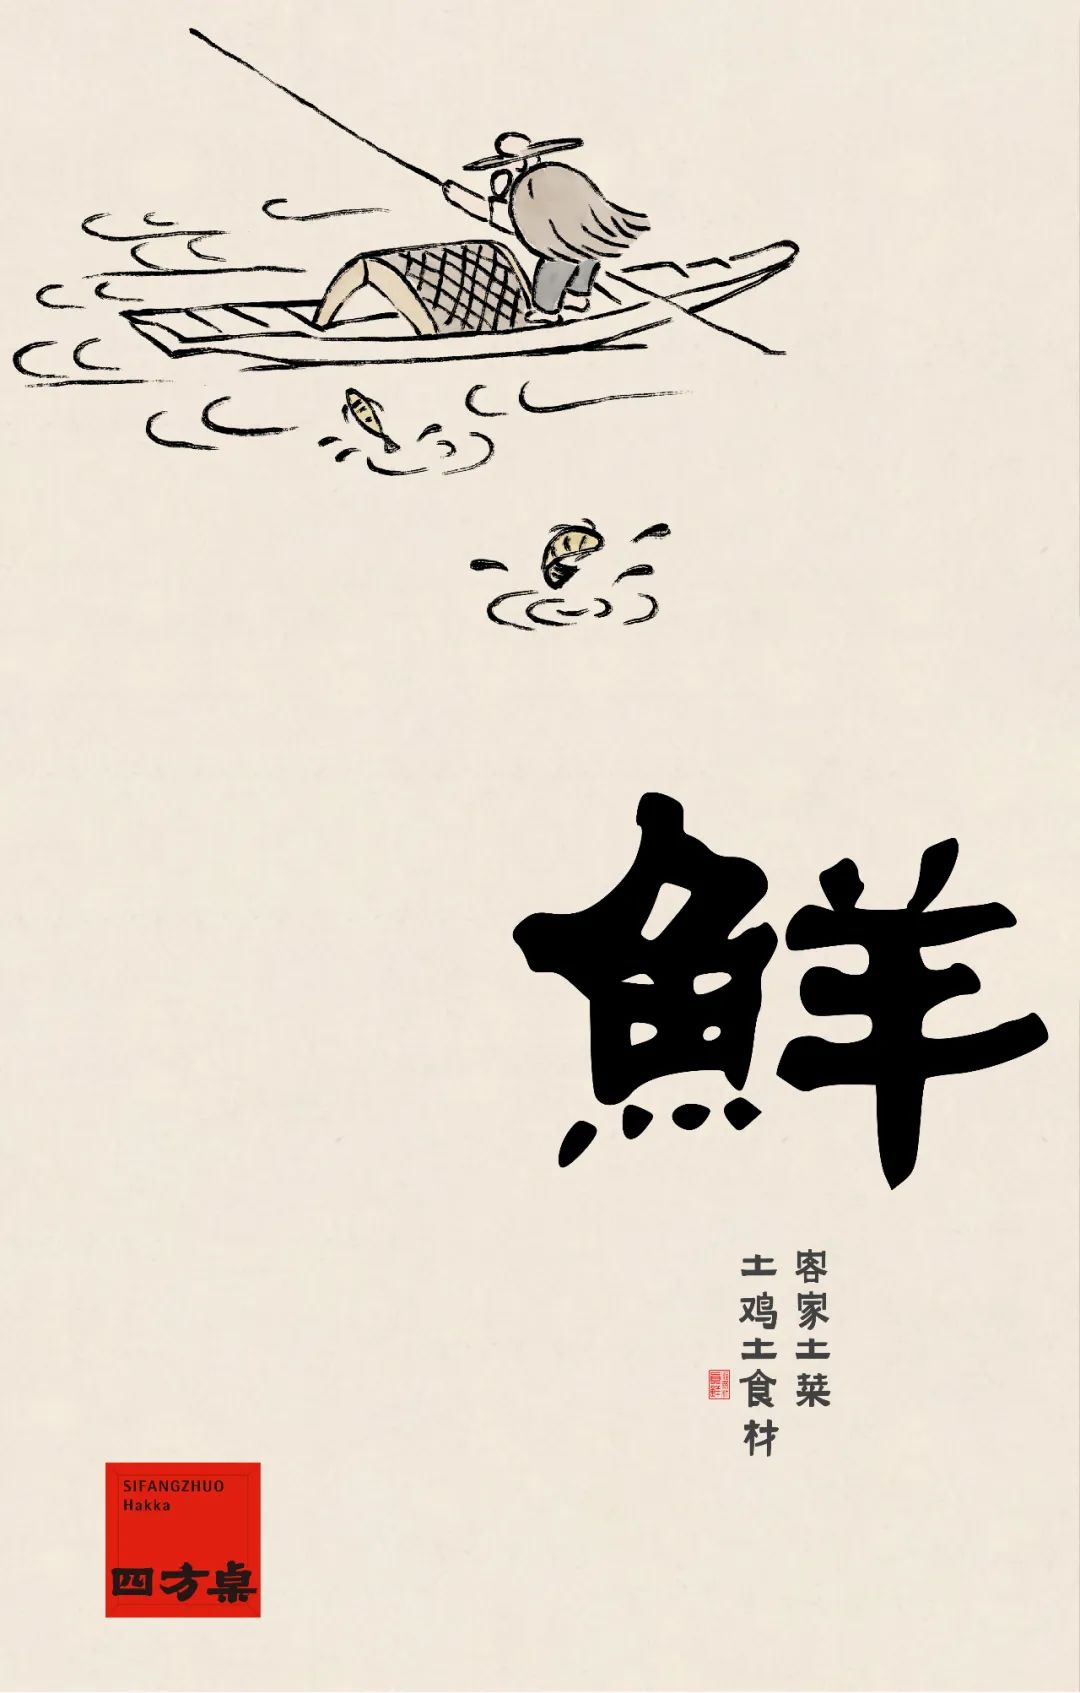 鮮
客家土菜
土鸡土食材
SIFANGZHUO
Hakka
四方桌